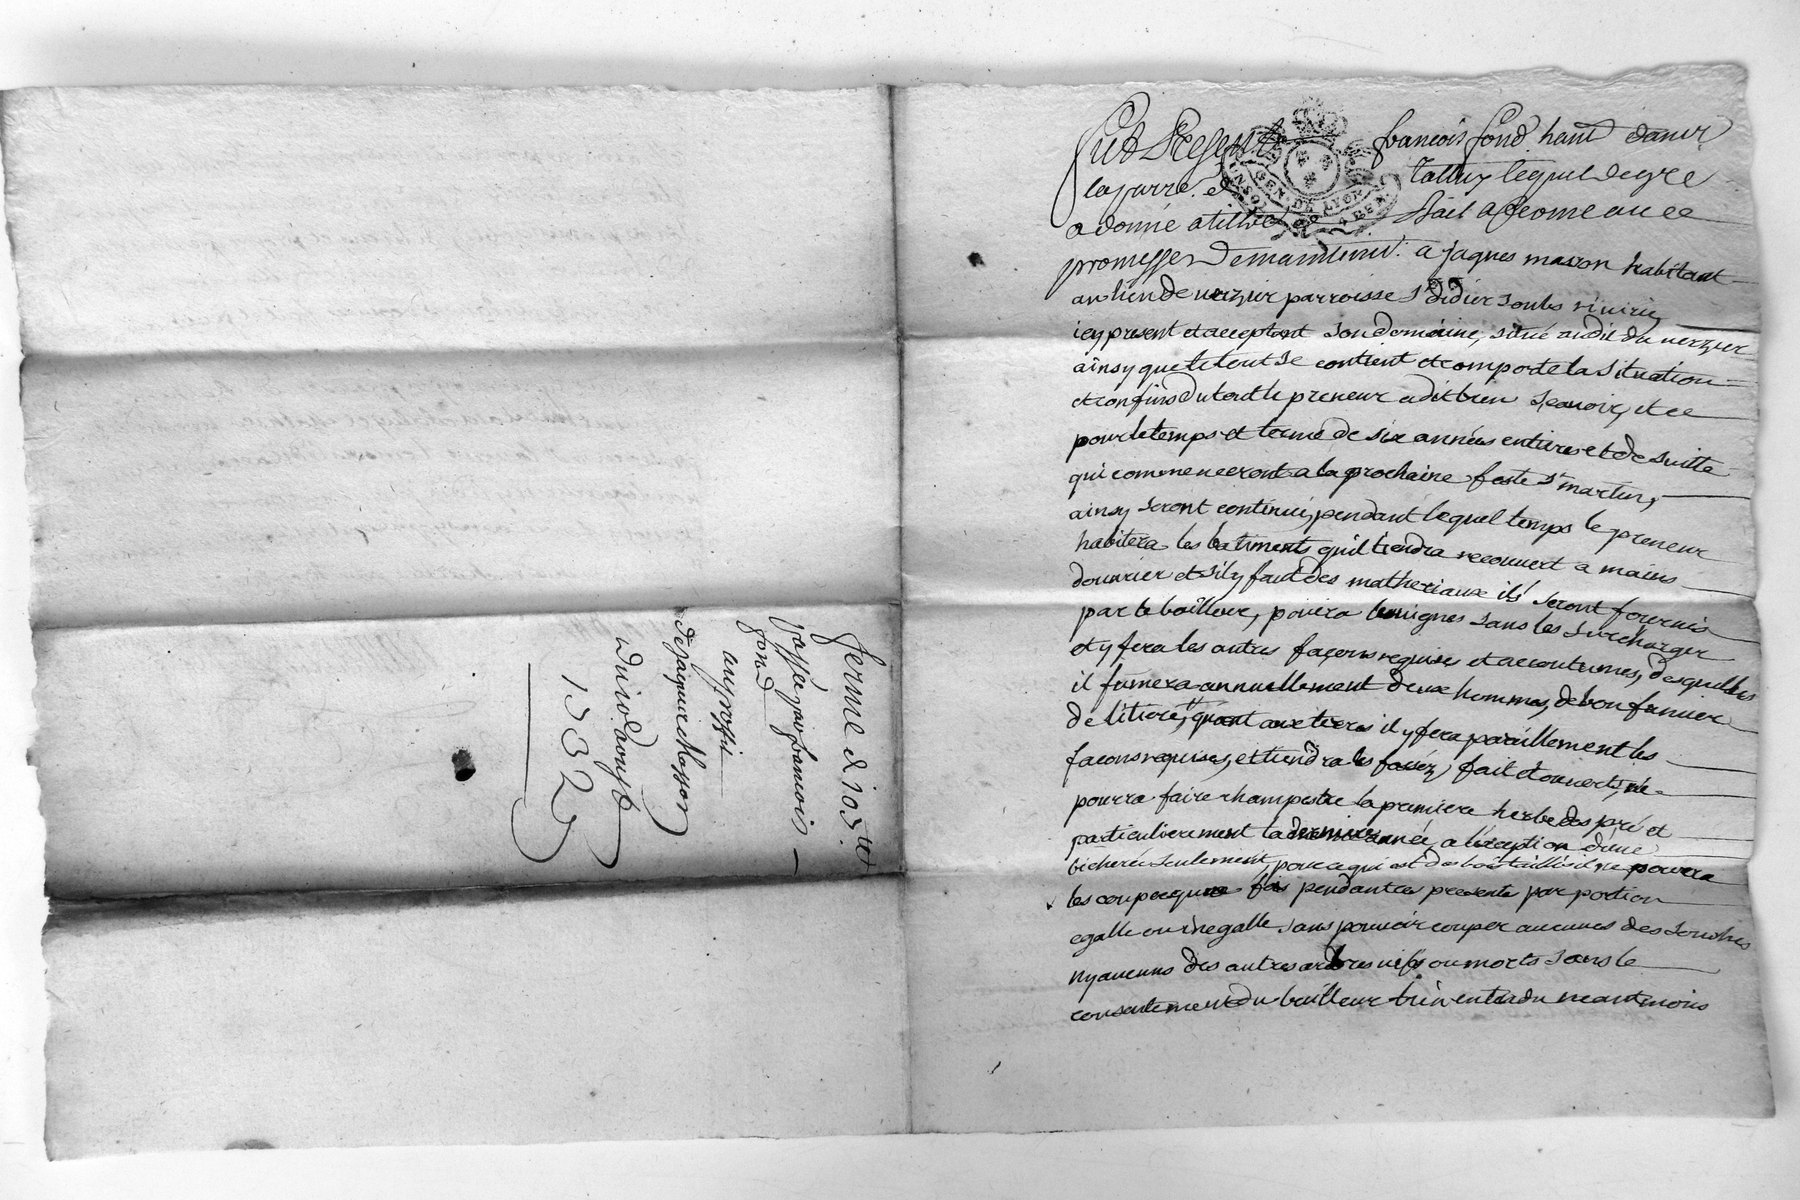 ferme d 10 8.te
passée par francois
fond
au proffi
de jaques Masson
du 10.e aoust
1732
GEN. DE LYON
fut Present francois fond hant
la jarre, lequel de gre
a donné a tiltre de bail a ferme avec
promesse de maintenir a jaques masson habitant
au lieu de verzier parroisse st didier soubs riviere
icy present et acceptant son domaine, situé audit du verzier
ainsy que le tout se contient et comporte la situation
et confins du tout le preneur a dit bien sçauoir, et ce
pour le temps et terme de six années entieres et de suitte
qui commenceront a la prochaine feste st martin,
ainsy seront continué, pendant lequel temps le preneur
habitera les batiments quil tiendra recouvert a mains
douvrier et sil y faut des matheriaux ils seront fournis
par le bailleur, les vignes sans les surcharger
et y fera les autres façons requises et accoutumes, desquelles
il fumera annuellement deux hommes, de bon fumier
de litiere, quant aux terres il y fera pareillement les
facons requises, et tiendra les fossez, fait et ouverts, ne
pourra faire champestre la premiere herbe des pré et
particulierement la derniere année, a lexception dune
bicherée seulement, pour ce qui est des bois taillis il ne pourra
les couper qune fois pendant ces presente par portion
egalle ou inegalle sans pouvoir couper aucunes des souches
ny aucuns des autres arbres vifs ou morts sans le
consentement du bailleur bien entendu neantmoins